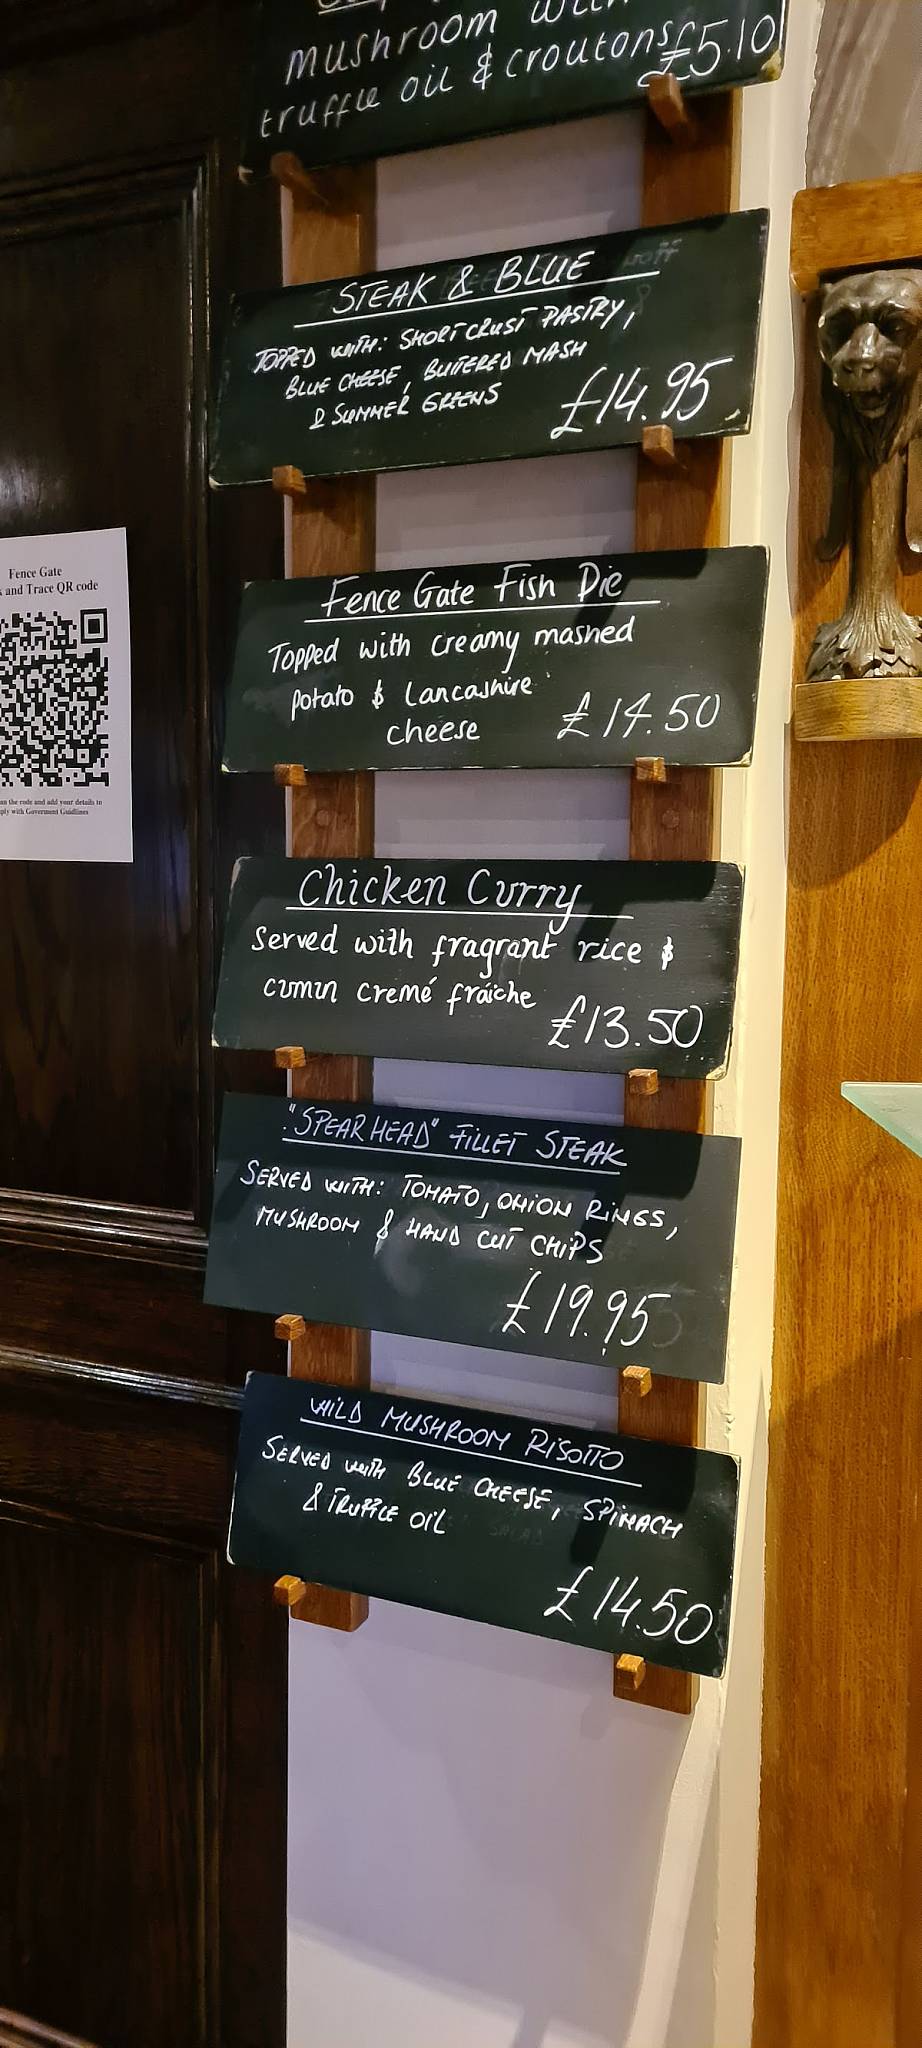 mushroom with
truffle oil & croutons £5.10
STEAK & BLUE
TOPPED WITH: SHORTCRUST PASTRY,
BLUE CHEESE, BUTTERED MASH
& SUMMER GREENS
£14.95
Fence Gate Fish Pie
Topped with creamy mashed
potato & Lancashire
cheese £14.50
Chicken Curry
Served with fragrant rice &
cumin cremé fráiche
£13.50
"SPEAR HEAD" FILLET STEAK
SERVED WITH: TOMATO, ONION RINGS,
MUSHROOM & HAND CUT CHIPS
£19.95
WILD MUSHROOM RISOTTO
SERVED WITH BLUE CHEESE, SPINACH
& TRUFFLE OIL
£14.50
Fence Gate
and Trace QR code
the code and add your details to
with Goverment Guidlines